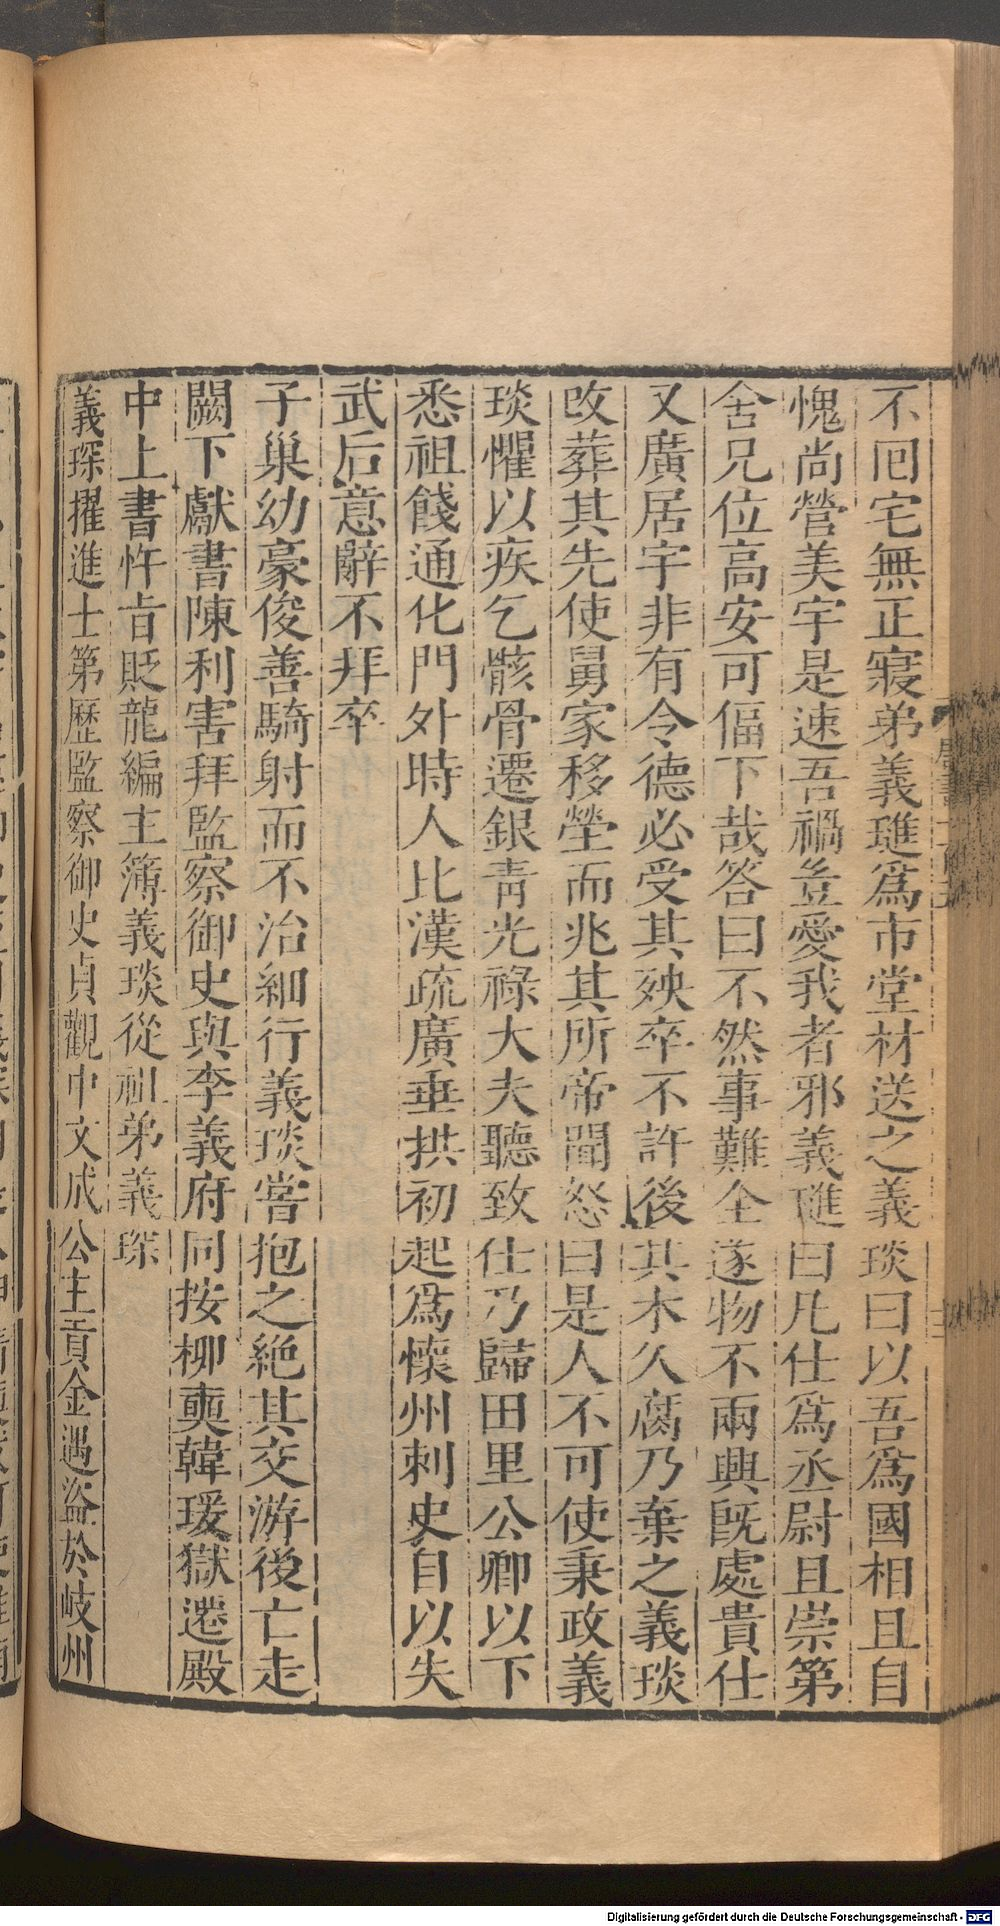 不囘宅無正寢弟義璡爲市堂材送之義琰曰以吾爲國相且自
愧尚營美宇是速吾禍豈愛我者邪義璡曰凡仕爲丞尉且崇第
舍兄位高安可偪下哉答曰不然事難全遂物不兩興旣處貴仕
又廣居宇非有令德必受其殃卒不許後其木久腐乃棄之義琰
改葬其先使舅家移塋而兆其所帝聞怒曰是人不可使秉政義
琰懼以疾乞骸骨遷銀靑光祿大夫聽致仕乃歸田里公卿以下
悉祖餞通化門外時人比漢疏廣垂拱初起爲懷州刺史自以失
武后意辭不拜卒
子巢幼豪俊善騎射而不治細行義琰嘗抱之絕其交游後亡走
闕下獻書陳利害拜監察御史與李義府同按柳奭韓瑗獄遷殿
中上書忤旨貶龍編主簿義琰從祖弟義琛
義琛擢進士第歷監察御史貞觀中文成公主貢金遇盜於岐州
Digitalisierung gefördert durch die Deutsche Forschungsgemeinschaft - DFG